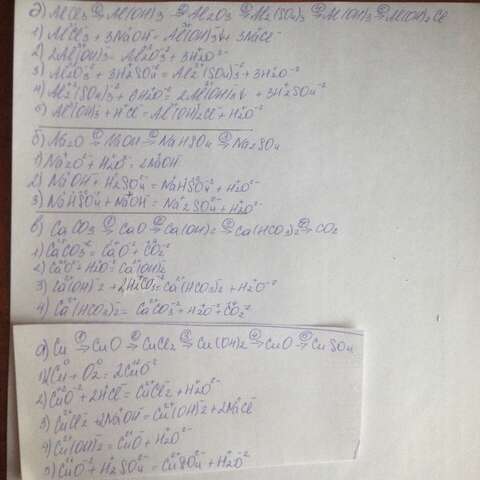 д) AlCl3 →① Al(OH)3 →② Al2O3 →③ Al2(SO4)3 →④ Al(OH)3 →⑤ Al(OH)2Cl
1) AlCl3 + 3NaOH = Al(OH)3↓ + 3NaCl
2) 2Al(OH)3 = Al2O3 + 3H2O
3) Al2O3 + 3H2SO4 = Al2(SO4)3 + 3H2O
4) Al2(SO4)3 + 6H2O = 2Al(OH)3↓ + 3H2SO4
5) Al(OH)3 + HCl = Al(OH)2Cl + H2O
б) Na2O →① NaOH →② NaHSO4 →③ Na2SO4
1) Na2O + H2O = 2NaOH
2) NaOH + H2SO4 = NaHSO4 + H2O
3) NaHSO4 + NaOH = Na2SO4 + H2O
в) CaCO3 →① CaO →② Ca(OH)2 →③ Ca(HCO3)2 →④ CO2
1) CaCO3 = CaO + CO2
2) CaO + H2O = Ca(OH)2
3) Ca(OH)2 + 2H2CO3 = Ca(HCO3)2 + H2O
4) Ca(HCO3)2 = CaCO3 + H2O + CO2
а) Cu →① CuO →② CuCl2 →③ Cu(OH)2 →④ CuO →⑤ CuSO4
1) 2Cu + O2 = 2CuO
2) CuO + 2HCl = CuCl2 + H2O
3) CuCl2 + 2NaOH = Cu(OH)2 + 2NaCl
4) Cu(OH)2 = CuO + H2O
5) CuO + H2SO4 = CuSO4 + H2O